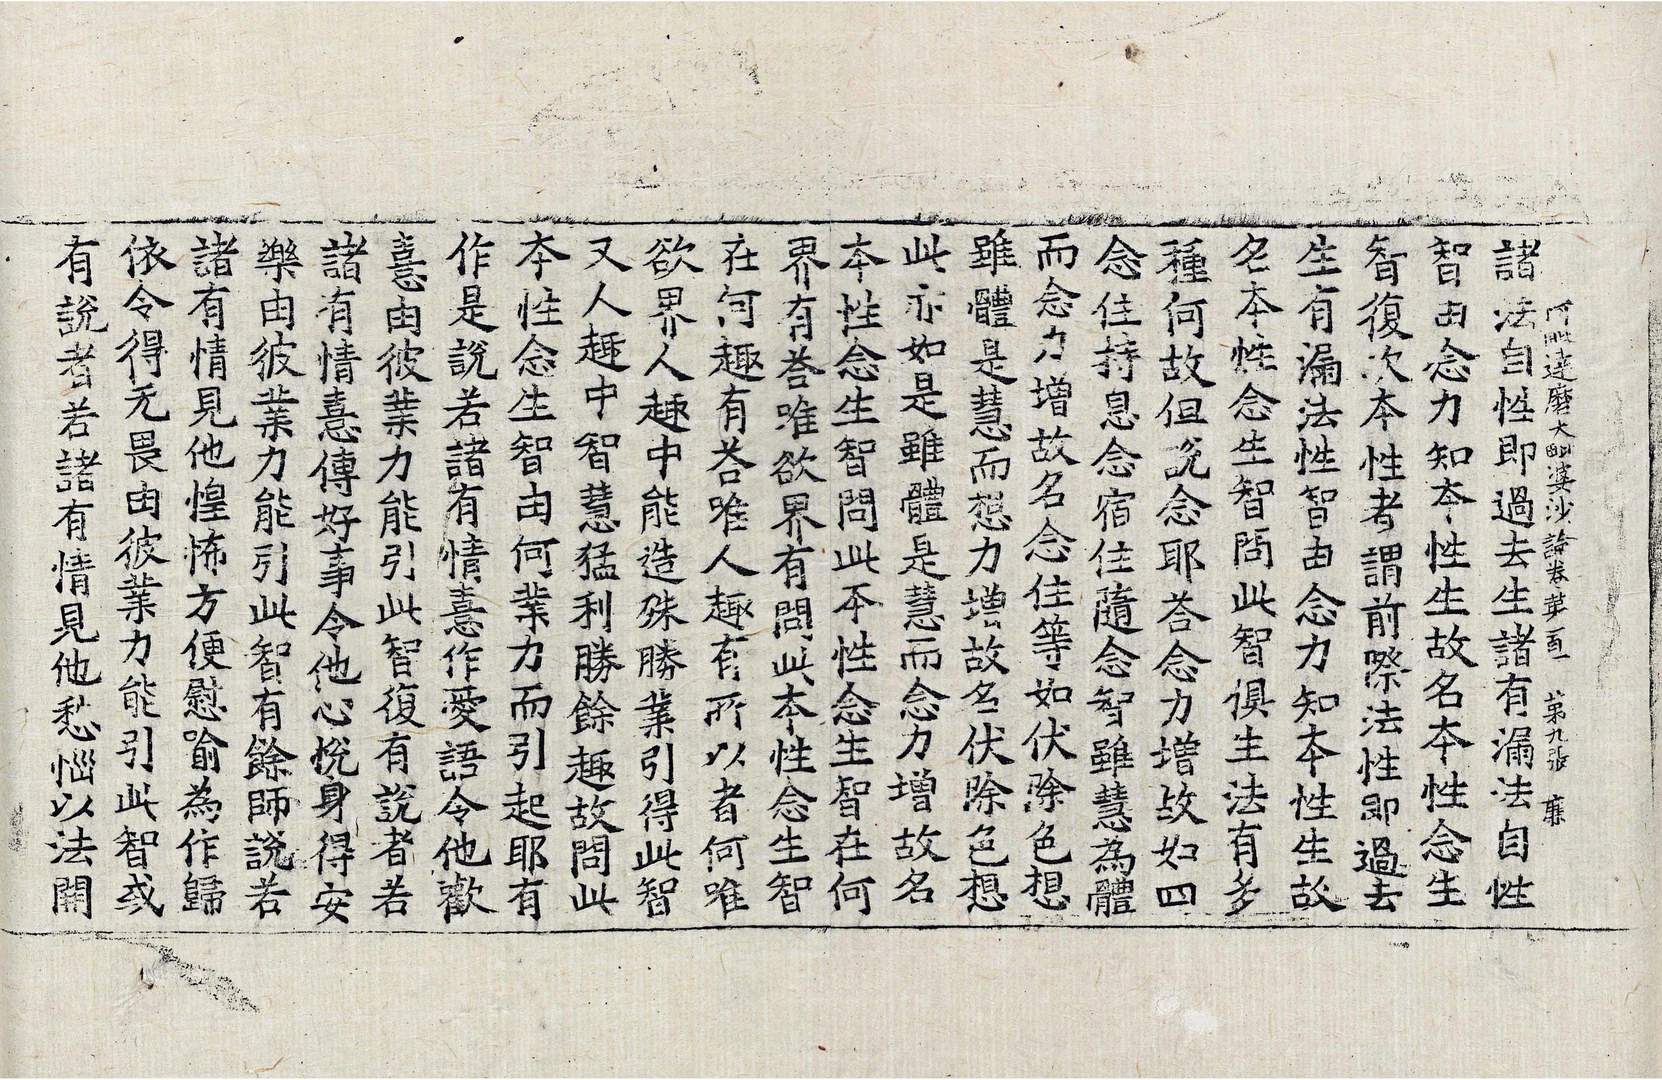 阿毗達磨大毗婆沙論卷第百一　第九張　廉
諸法自性即過去生諸有漏法自性
智由念力知本性生故名本性念生
智復次本性者謂前際法性即過去
生有漏法性智由念力知本性生故
名本性念生智問此智俱生法有多
種何故但說念耶荅念力增故如四
念住持息念宿住隨念智雖慧為體
而念力增故名念住等如伏除色想
雖體是慧而想力增故名伏除色想
此亦如是雖體是慧而念力增故名
本性念生智問此本性念生智在何
界有荅唯欲界有問此本性念生智
在何趣有荅唯人趣有所以者何唯
欲界人趣中能造殊勝業引得此智
又人趣中智慧猛利勝餘趣故問此
本性念生智由何業力而引起耶有
作是說若諸有情憙作愛語令他歡
憙由彼業力能引此智復有說者若
諸有情憙傳好事令他心悅身得安
樂由彼業力能引此智有餘師說若
諸有情見他惶怖方便慰喻為作歸
依令得无畏由彼業力能引此智或
有說者若諸有情見他愁惱以法開